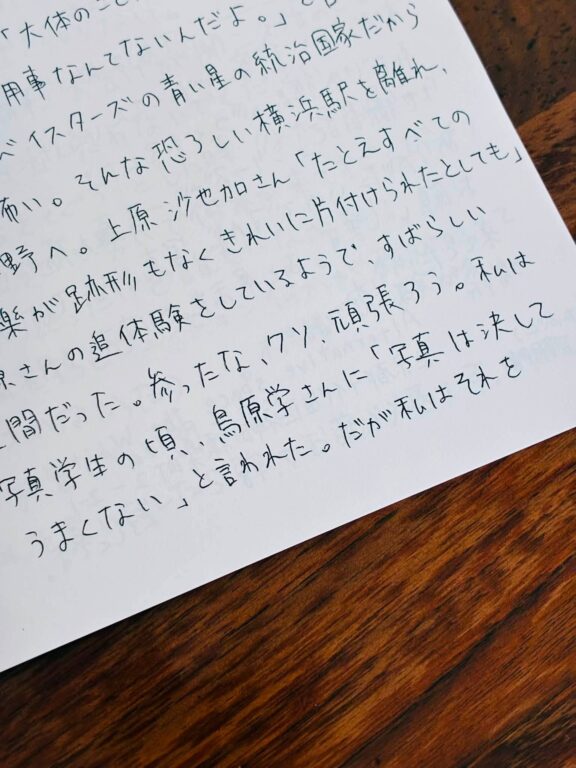 「大体のこと
用事なんてないんだよ。」と言
ベイスターズの青い星の統治国家だから
怖い。そんな恐ろしい横浜駅を離れ、
野へ。上原沙也加さん「たとえすべての
楽が跡形もなくきれいに片付けられたとしても」
原さんの追体験をしているようで、すばらしい
間だった。参ったな、クソ、頑張ろう。私は
写真学生の頃、鳥原学さんに「写真は決して
うまくない」と言われた。だが私はそれを